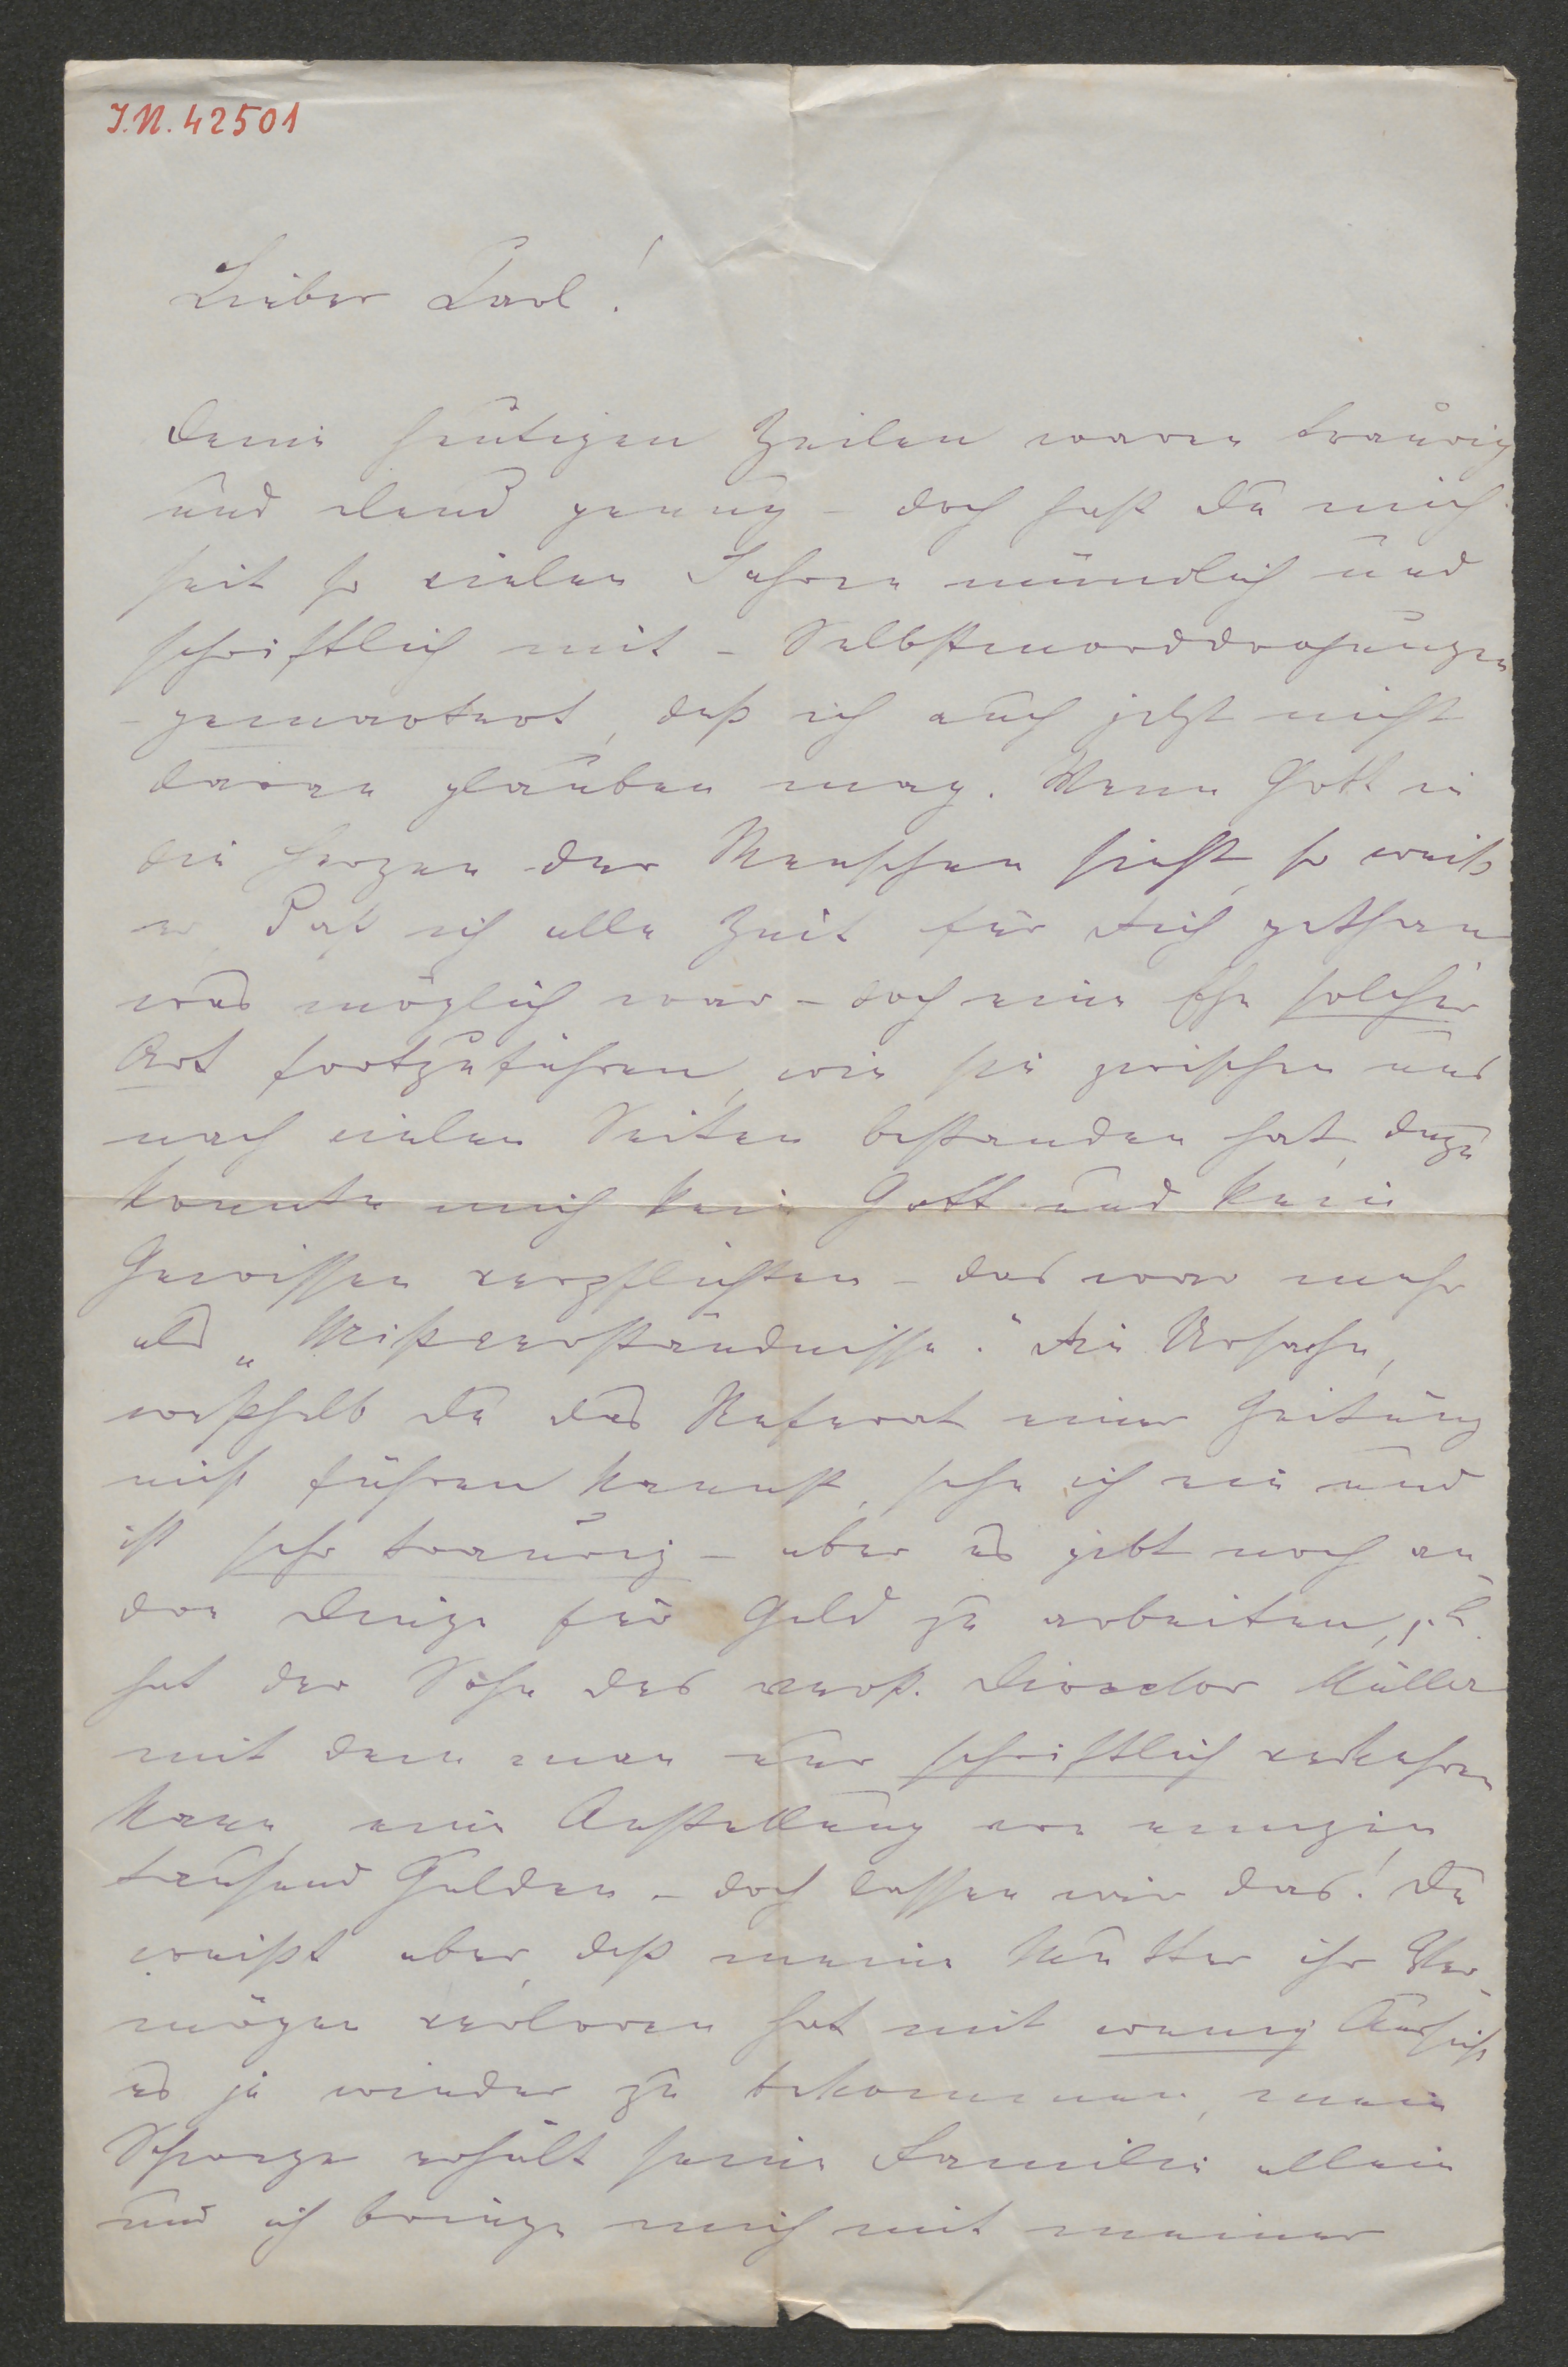 I.N. 42501
Lieber Carl!
Deine heutigen Zeilen waren traurig
und elend genug – doch hast Du mich
seit so vielen Jahren mündlich und
schriftlich mit – Selbstmorddrohungen
– gemartert, daß ich auch jetzt nicht
daran glauben mag. Wenn Gott in
die Herzen der Menschen sieht, so weiß
er, daß ich alle Zeit für Dich gethan
was möglich war – doch eine Ehe solcher
Art fortzuführen, wie sie zwischen uns
nach vielen Seiten bestanden hat, dazu
konnte mich kein Gott und kein
Gewissen verpflichten – das war mehr
als „Mißverständnisse." Die Ursache,
weßhalb Du das Referat einer Zeitung
nicht führen kannst, sehe ich ein und
ist sehr traurig – aber es gibt noch an
dre Dinge für Geld zu arbeiten,
hat der Sohn des verst. Director Müller
mit dem man nur schriftlich verkehren
kann, eine Anstellung von einigen
tausend Gulden – doch lassen wir das! Du
weißt aber, daß meine Mutter ihr Ver
mögen verloren hat mit wenig Aussicht
es je wieder zu bekommen, mein
Schwager erhält seine Familie allein
und ich bringe mich mit meiner